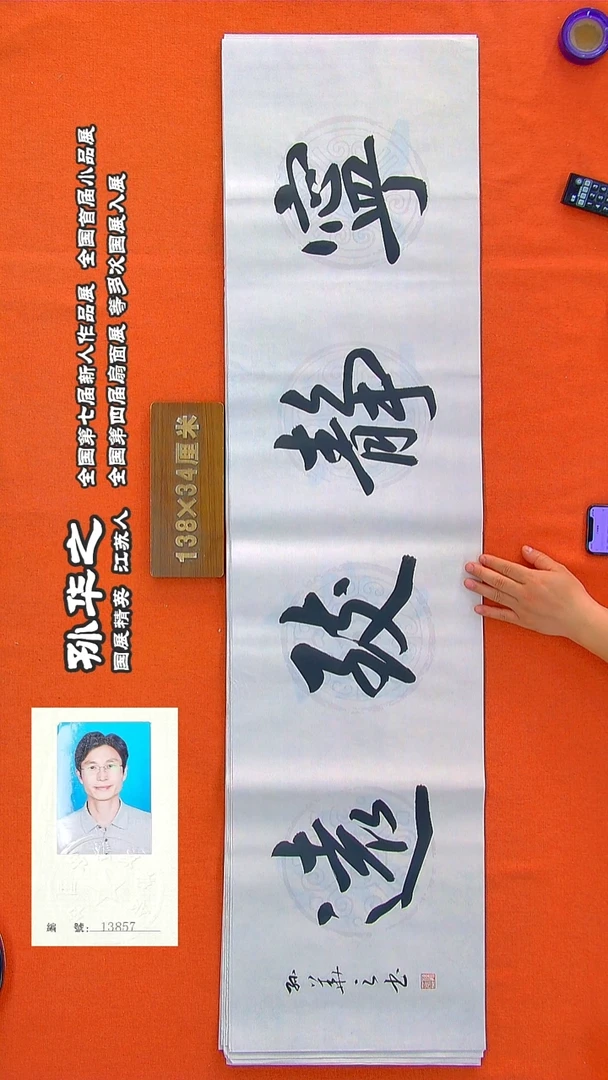 孙华之
国展精英 江苏人
全国第七届新人作品展 全国首届小品展
全国第四届扇面展 等多次国展入展
138×34厘米
寧静致遠
孙華之书
編 號: 13857